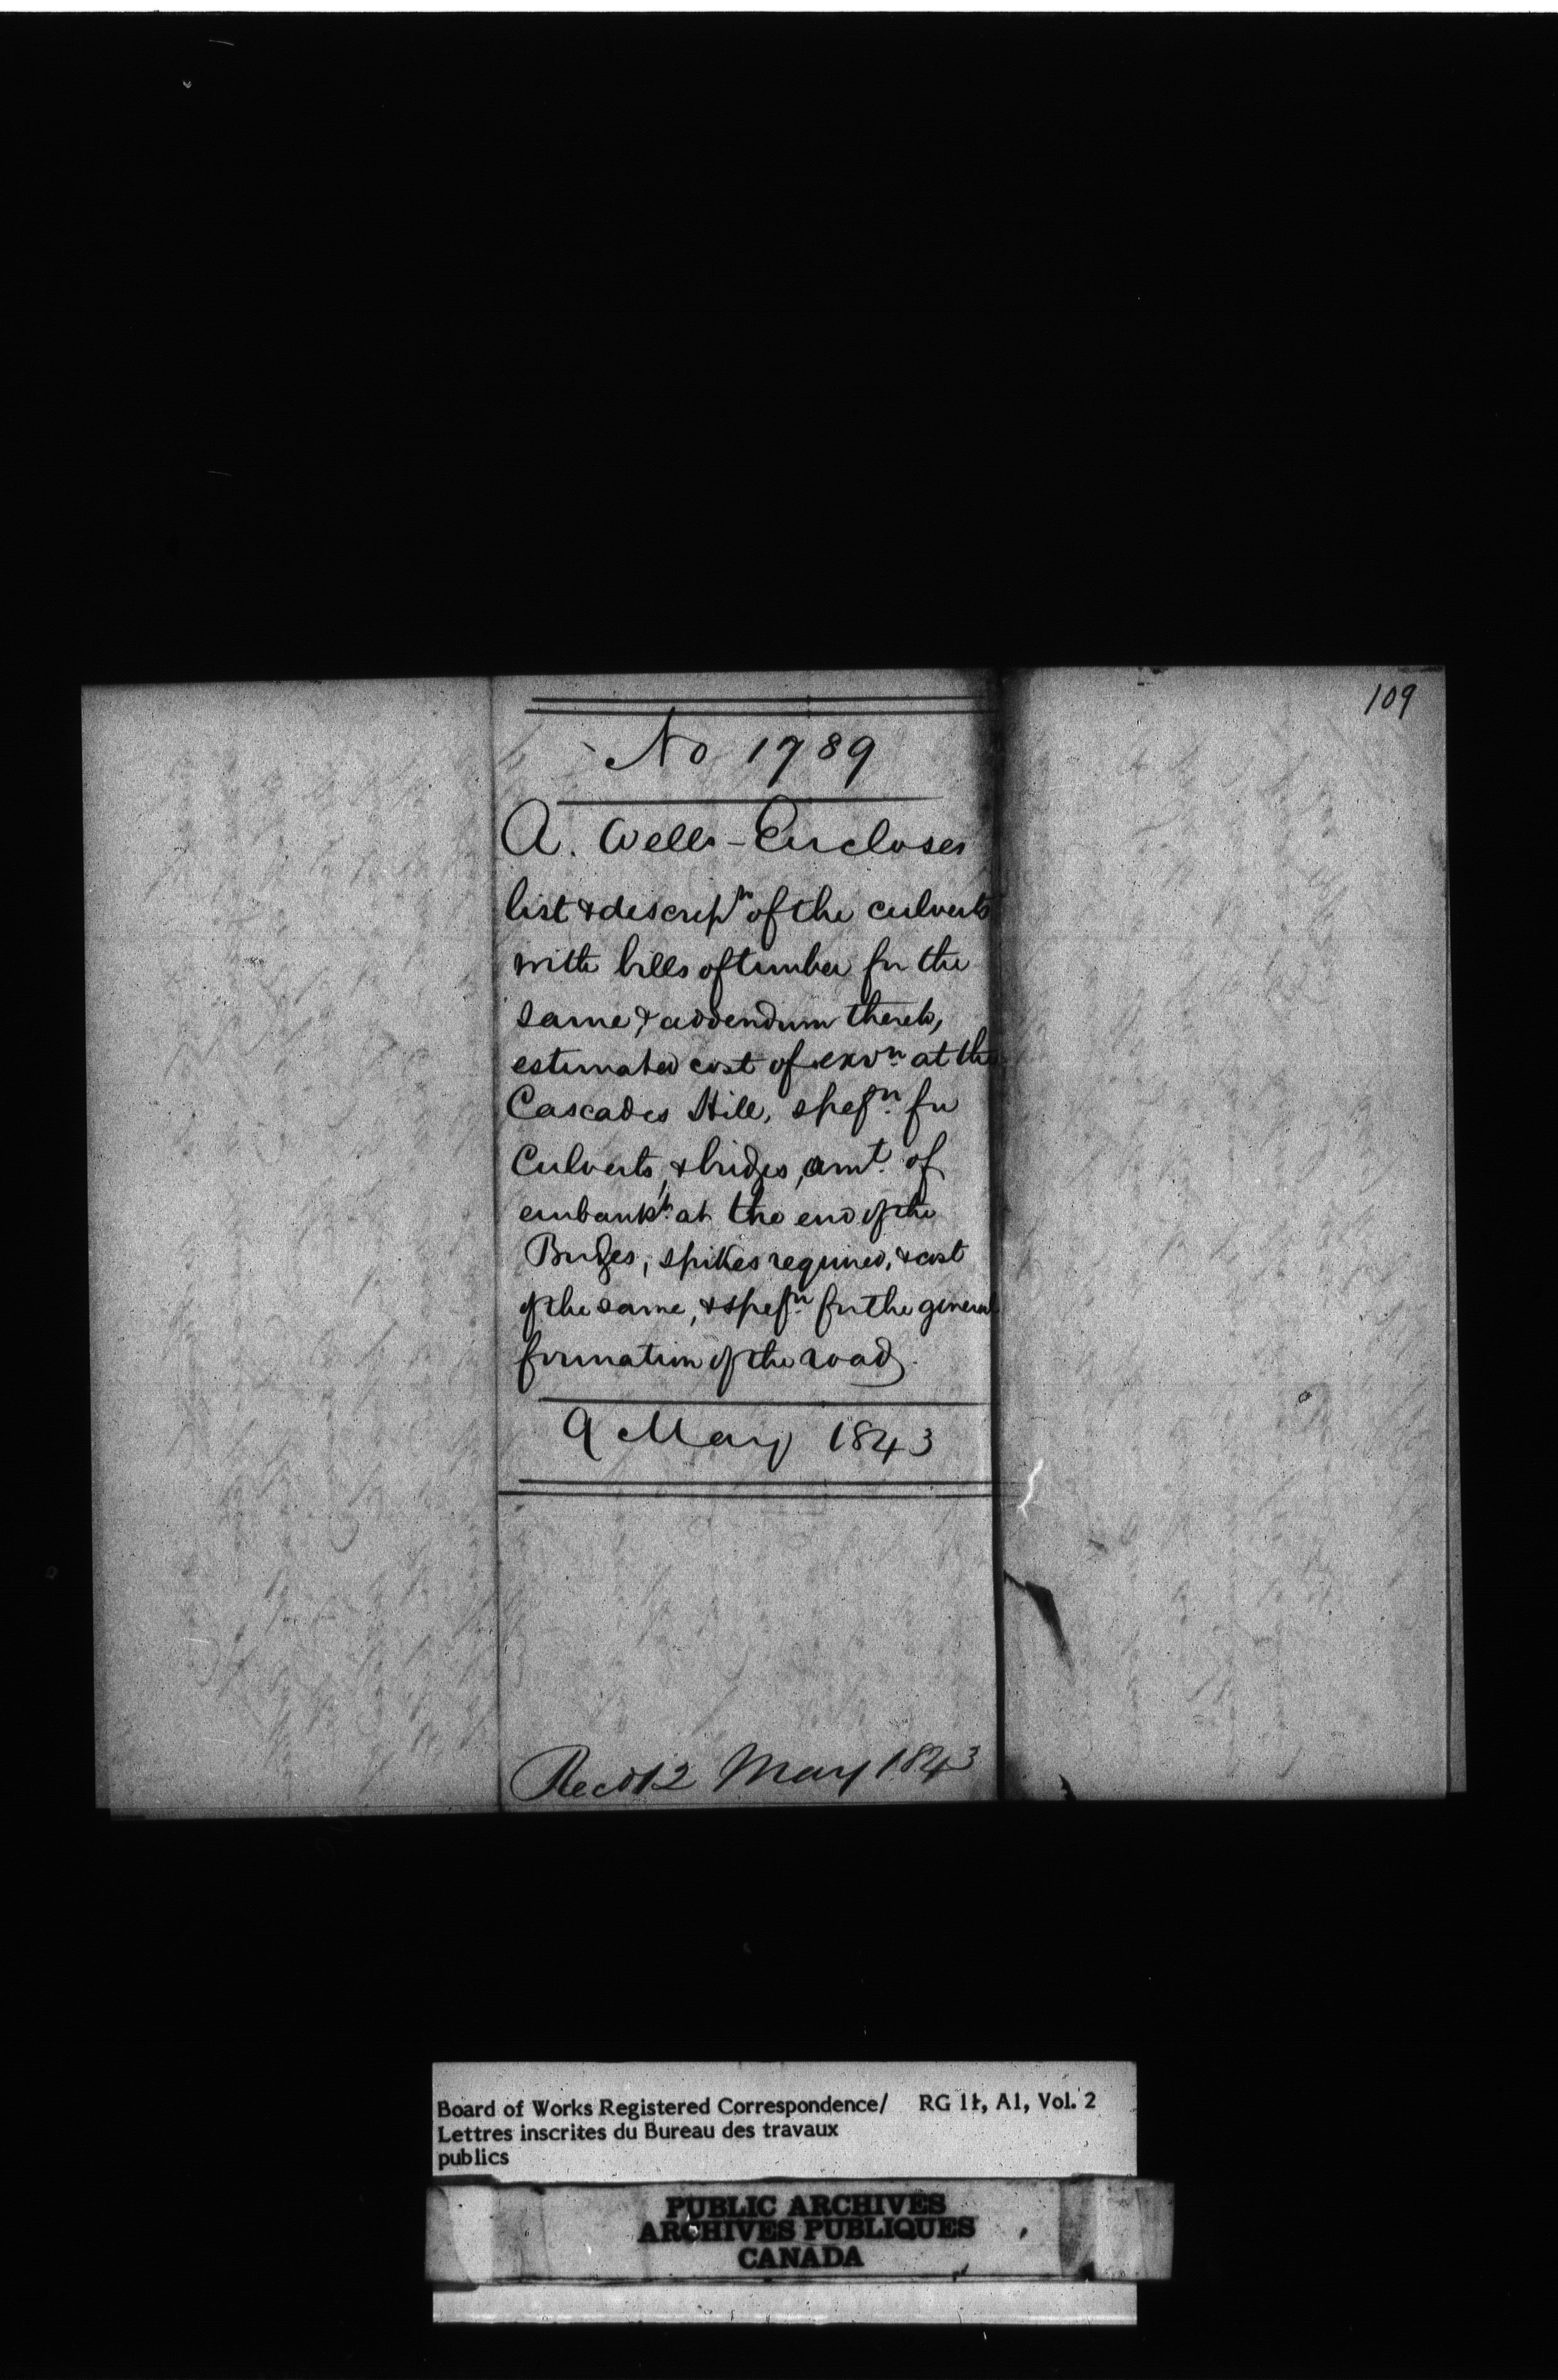 109
No 1789
A. Wells - Encloses
list & descripn of the culverts
with bills of timber for the
same & addendum thereto,
estimated cost of exvn. at the
Cascades Hill, spefn. for
Culverts, & bridges, amt. of
embankt. at the end of the
Bridges, spikes required, & cost
of the same, & spefn. for the general
formation of the road.
9 May 1843
Recd 12 May 1843
Board of Works Registered Correspondence/ RG 11, A1, Vol. 2
Lettres inscrites du Bureau des travaux
publics
PUBLIC ARCHIVES
ARCHIVES PUBLIQUES
CANADA